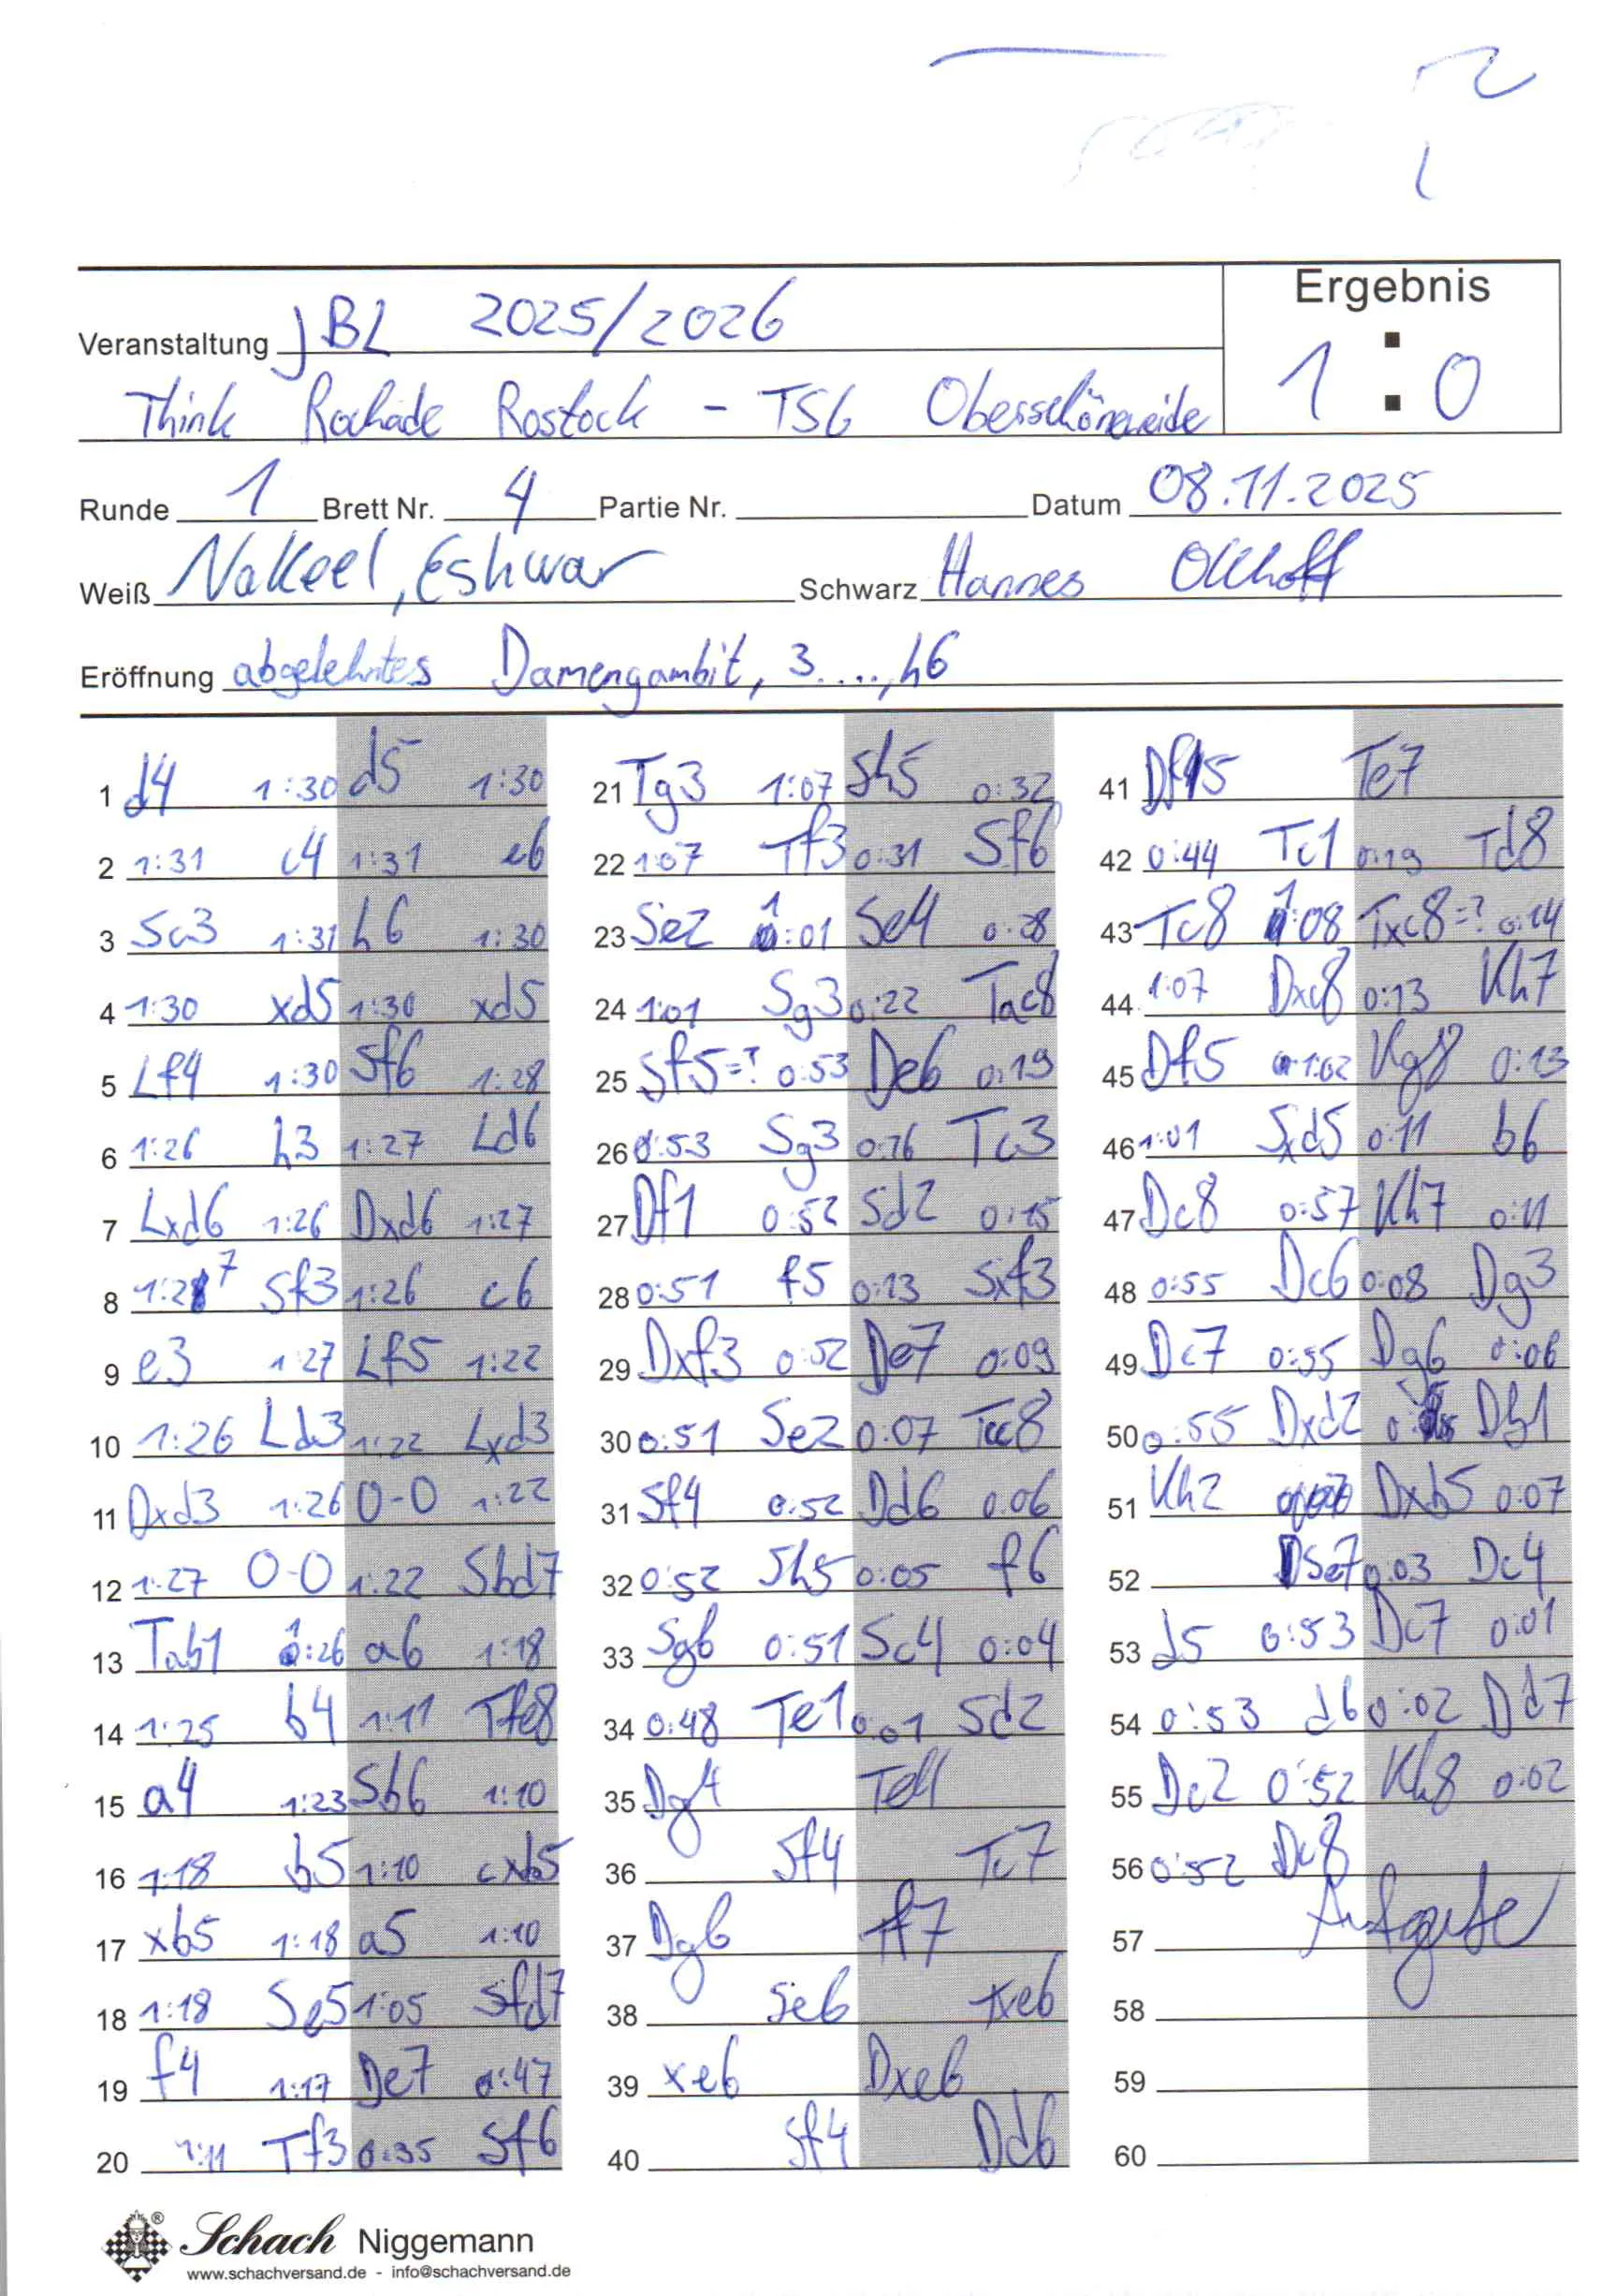 Ergebnis
Veranstaltung JBL 2025/2026
Think Rochade Rostock - TSG Oberschöneweide
1 : 0
Runde 1 Brett Nr. 4 Partie Nr. Datum 08.11.2025
Weiß Nakeel, Eshwar Schwarz Hannes Ollhoff
Eröffnung abgelehntes Damengambit, 3...., h6
1 d4 1:30 d5 1:30
2 1:31 c4 1:31 e6
3 Sc3 1:31 h6 1:30
4 1:30 xd5 1:30 xd5
5 Lf4 1:30 Sf6 1:28
6 1:26 h3 1:27 Ld6
7 Lxd6 1:26 Dxd6 1:27
8 1:27 Sf3 1:26 c6
9 e3 1:27 Lf5 1:22
10 1:26 Ld3 1:22 Lxd3
11 Dxd3 1:26 0-0 1:22
12 1:27 0-0 1:22 Sbd7
13 Tab1 1:26 a6 1:18
14 1:25 b4 1:11 Tfe8
15 a4 1:23 Sb6 1:10
16 1:18 b5 1:10 cxb5
17 xb5 1:18 a5 1:10
18 1:18 Se5 1:05 Sfd7
19 f4 1:17 De7 0:47
20 1:11 Tf3 0:35 Sf6
21 Tg3 1:07 Sh5 0:32
22 1:07 Tf3 0:31 Sf6
23 Se2 1:01 Se4 0:28
24 1:01 Sg3 0:22 Tac8
25 Sf5=? 0:53 De6 0:19
26 0:53 Sg3 0:16 Tc3
27 Df1 0:52 Sd2 0:15
28 0:51 f5 0:13 Sxf3
29 Dxf3 0:52 De7 0:09
30 0:51 Se2 0:07 Tcc8
31 Sf4 0:52 Dd6 0:06
32 0:52 Sh5 0:05 f6
33 Sg6 0:51 Sc4 0:04
34 0:48 Te1 0:01 Sd2
35 Dg4 Te4
36 Sf4 Tc7
37 Dg6 Tf7
38 Se6 Txe6
39 xe6 Dxe6
40 Sf4 Dd6
41 Df5 Te7
42 0:44 Tc1 0:19 Td8
43 Tc8 1:08 Txc8=? 0:14
44 1:07 Dxc8 0:13 Kh7
45 Df5 1:02 Kg8 0:13
46 1:01 Sxd5 0:11 b6
47 Dc8 0:57 Kh7 0:11
48 0:55 Dc6 0:08 Dg3
49 Dc7 0:55 Dg6 0:06
50 0:55 Dxd2 Db1
51 Kh2 Dxb5 0:07
52 Se7 0:03 Dc4
53 d5 0:53 Dc7 0:01
54 0:53 d6 0:02 Dd7
55 Dc2 0:52 Kh8 0:02
56 0:52 Dc8
57 Aufgabe
58
59
60
Schach Niggemann
www.schachversand.de - info@schachversand.de